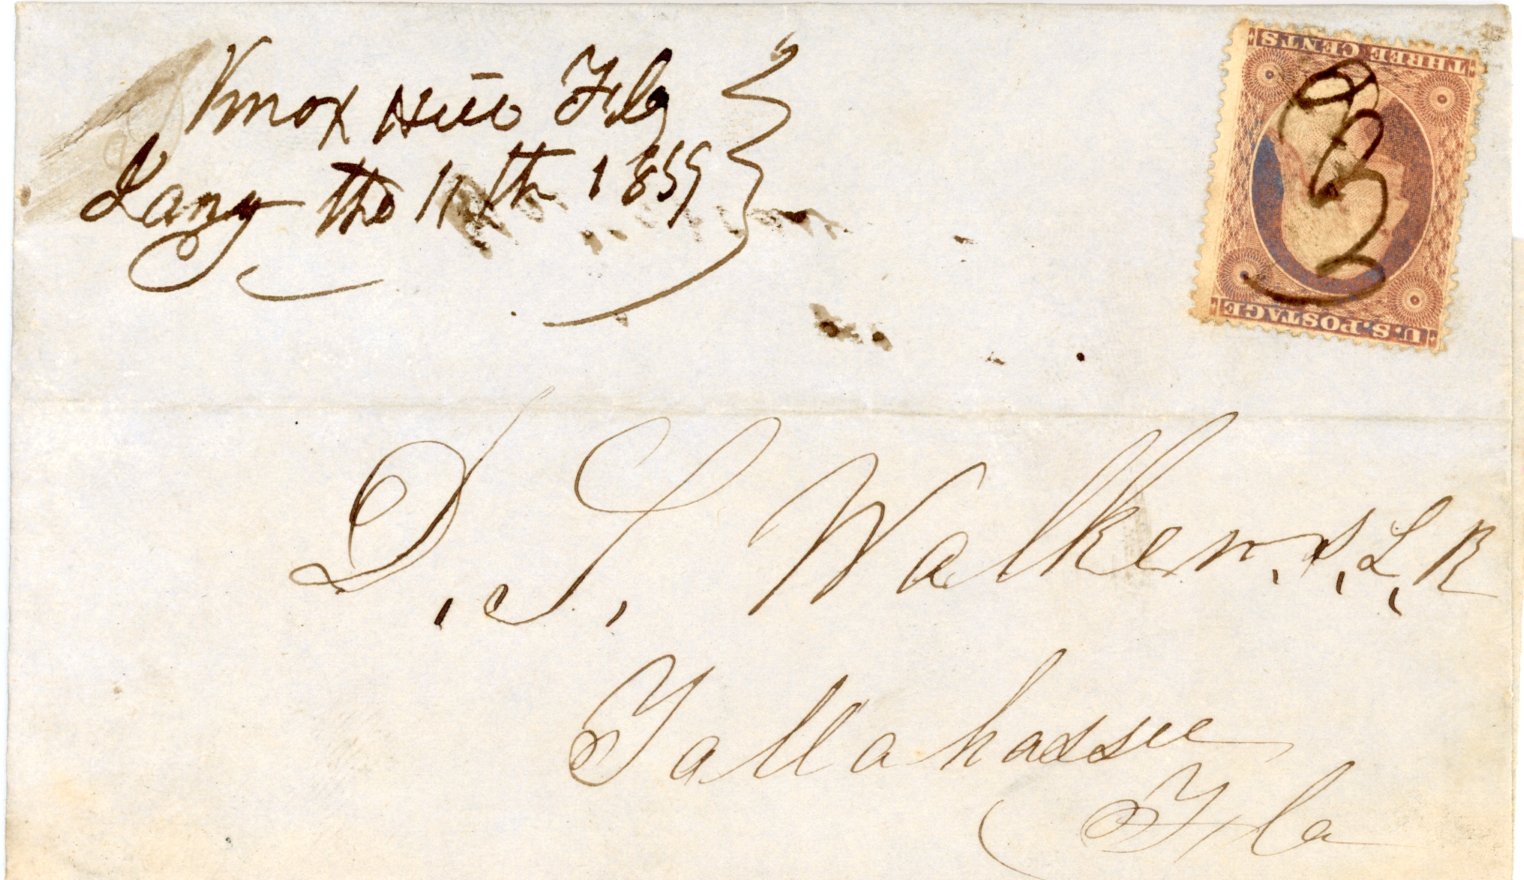 Knox Hill Fla
Jany the 11th 1859
THREE CENTS
U.S. POSTAGE
D. S. Walker. S. L. R
Tallahassee
Fla